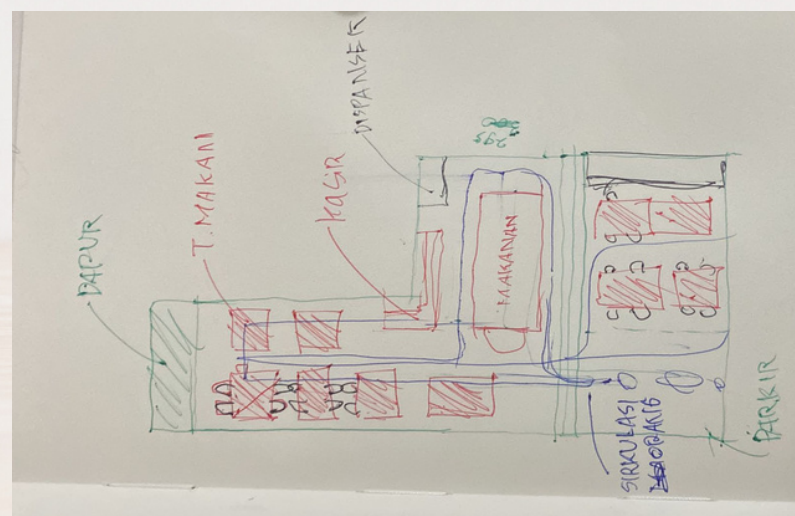 DAPUR
T. MAKAN
KASIR
DISPANSER
MAKANAN
SIRKULASI
PARKIR